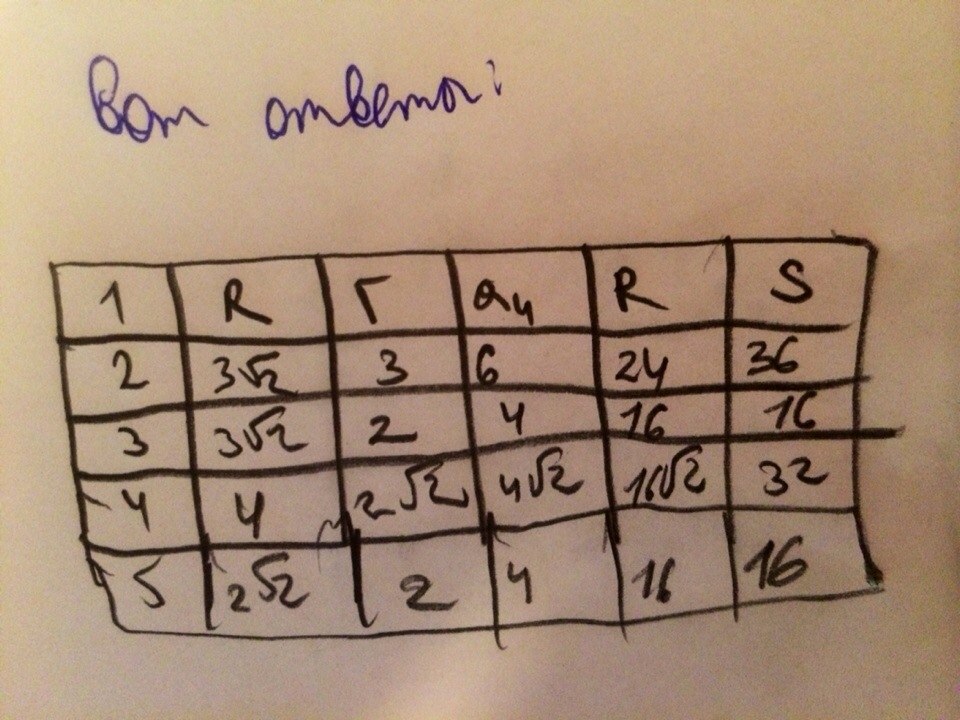 Вот ответы:
1 R r a₄ R S
2 3√2 3 6 24 36
3 3√2 2 4 16 16
4 4 2√2 4√2 16√2 32
5 2√2 2 4 16 16